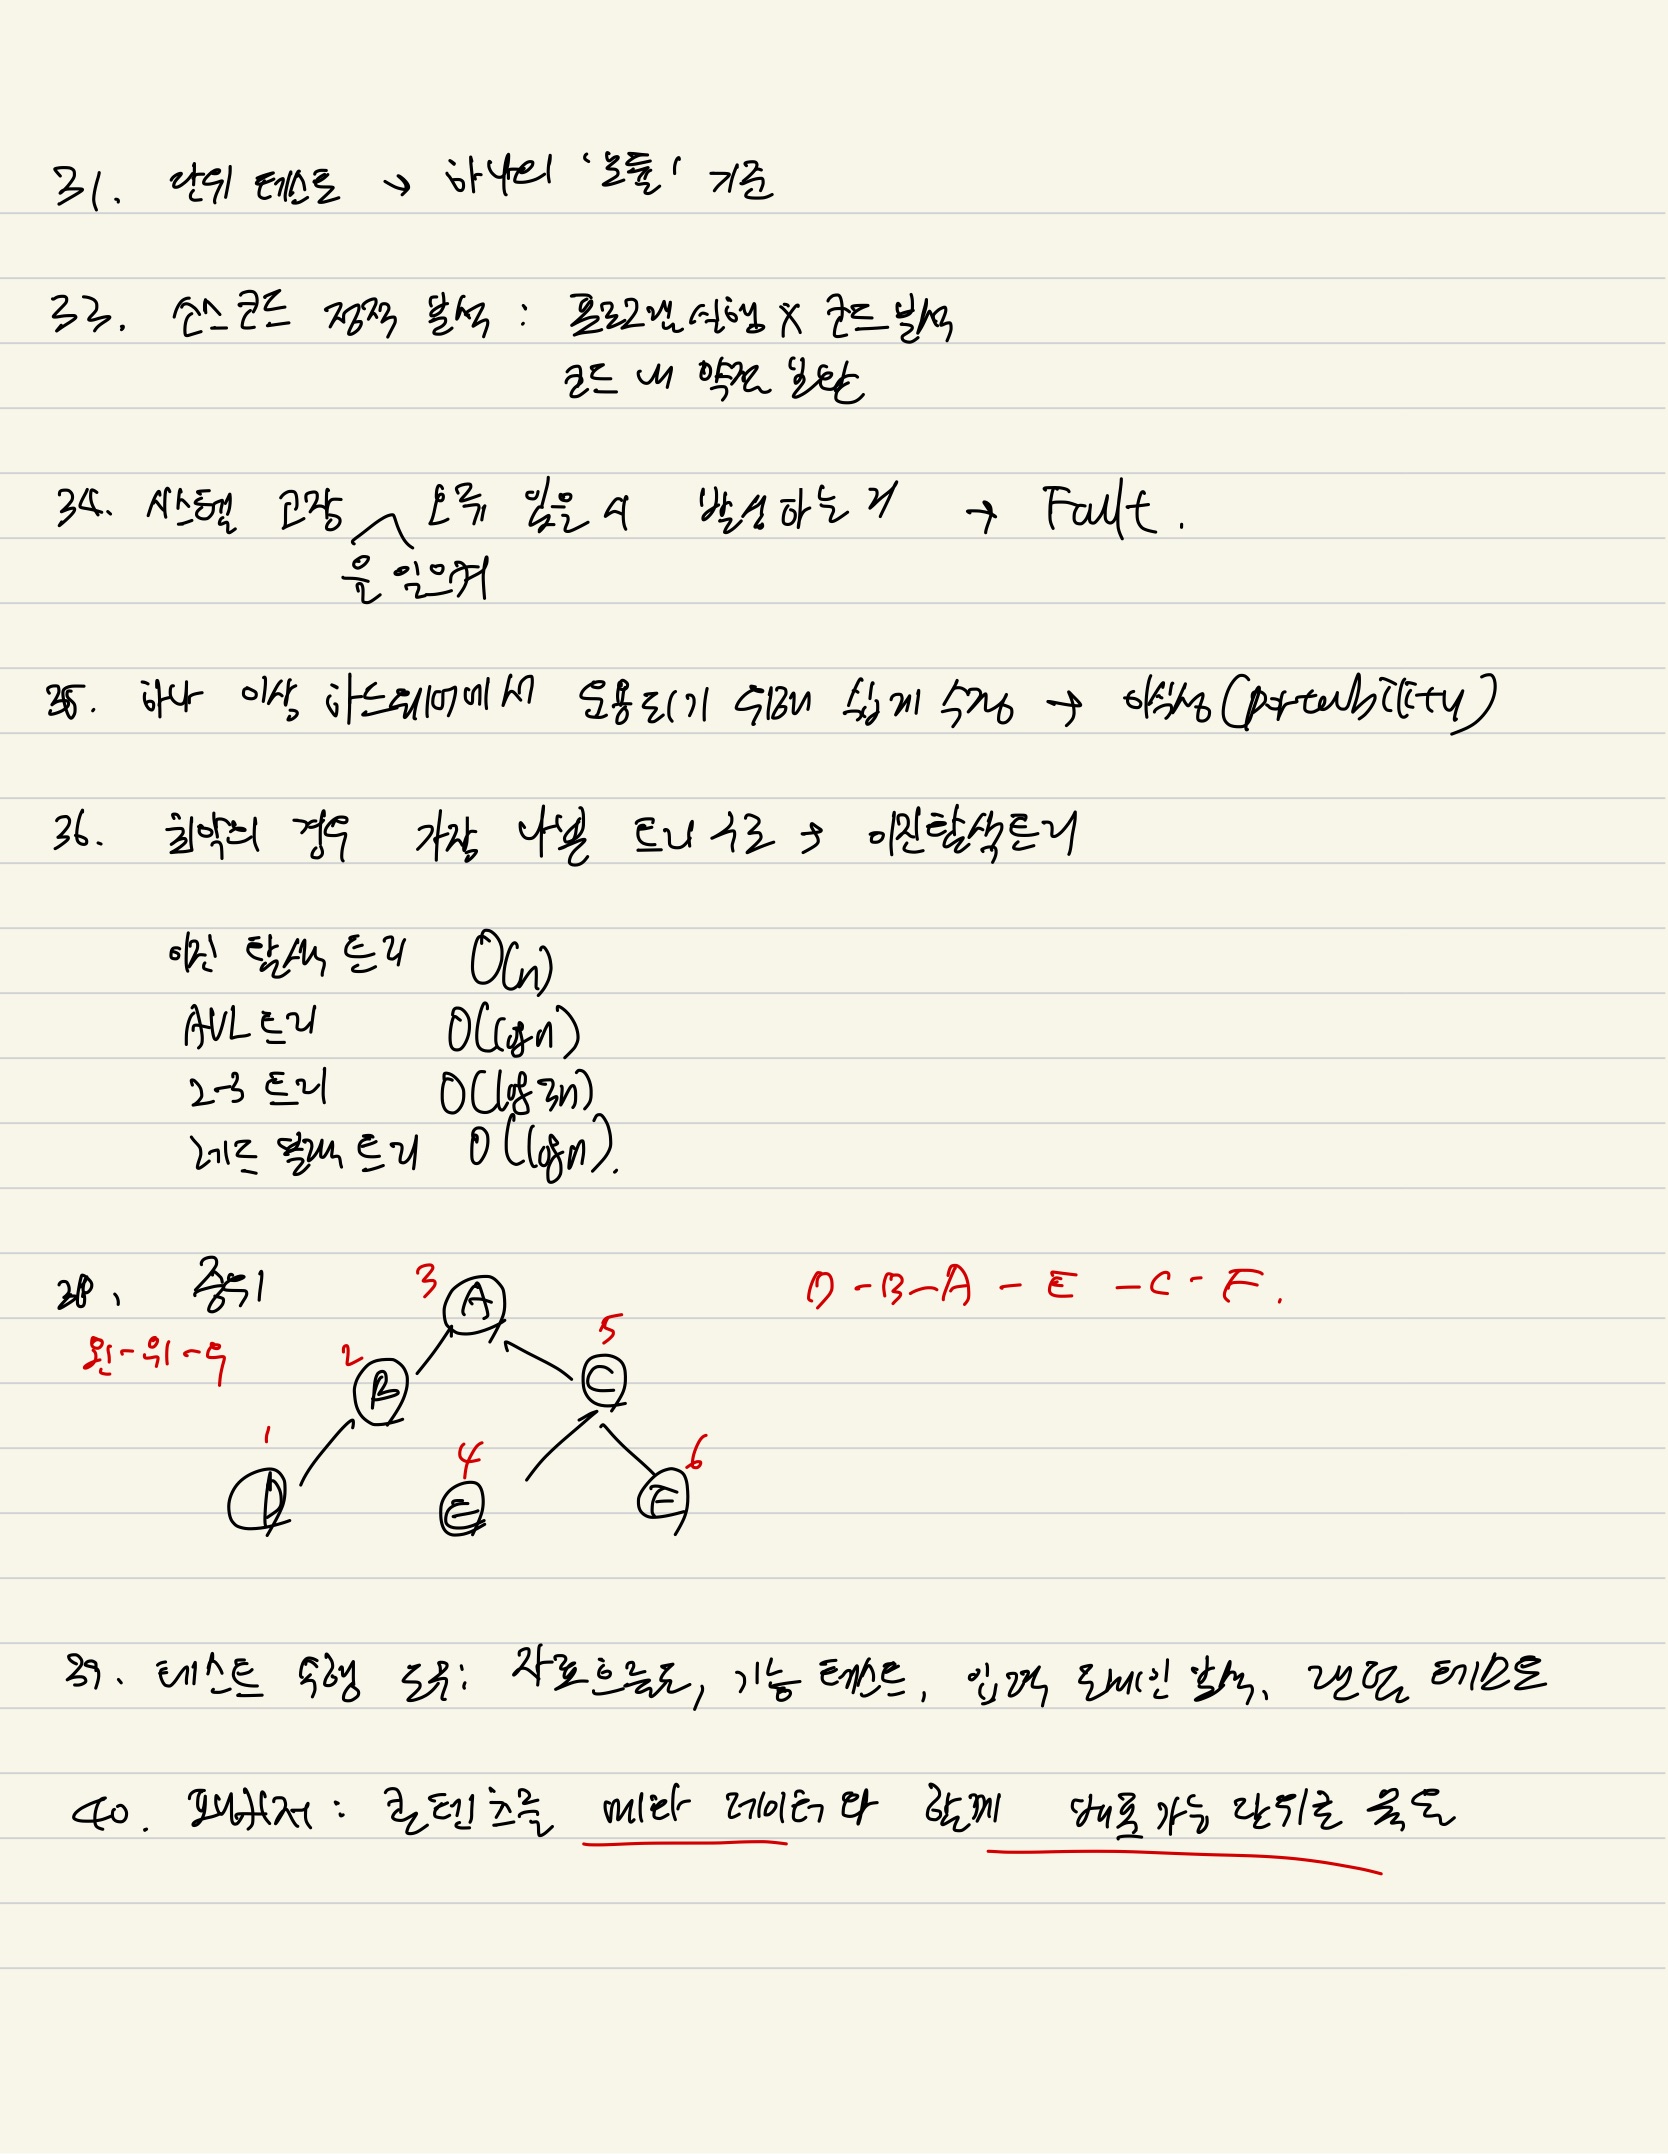 31. 단위 테스트 → 하나의 '모듈' 기준
33. 소스코드 정적 분석 : 프로그램 실행 X 코드 분석
코드 내 약점 발견
34. 시스템 고장 오류 있을 시 발생하는 거 → Fault.
을 일으켜
35. 하나 이상 하드웨어에서 운용되기 위해 쉽게 수정 → 이식성(portability)
36. 최악의 경우 가장 나쁜 트리 구조 → 이진탐색트리
이진 탐색 트리 O(n)
AVL트리 O(logn)
2-3 트리 O(log3n)
레드 블랙 트리 O(logn).
38. 중위 3 A D - B - A - E - C - F.
왼-위-우 2 B 5 C
1 D 4 E 6 F
39. 테스트 수행 도구: 자료흐름도, 기능 테스트, 입력 도메인 분석, 랜덤 테스트
40. 패키저 : 콘텐츠를 메타 데이터와 함께 배포 가능 단위로 묶음